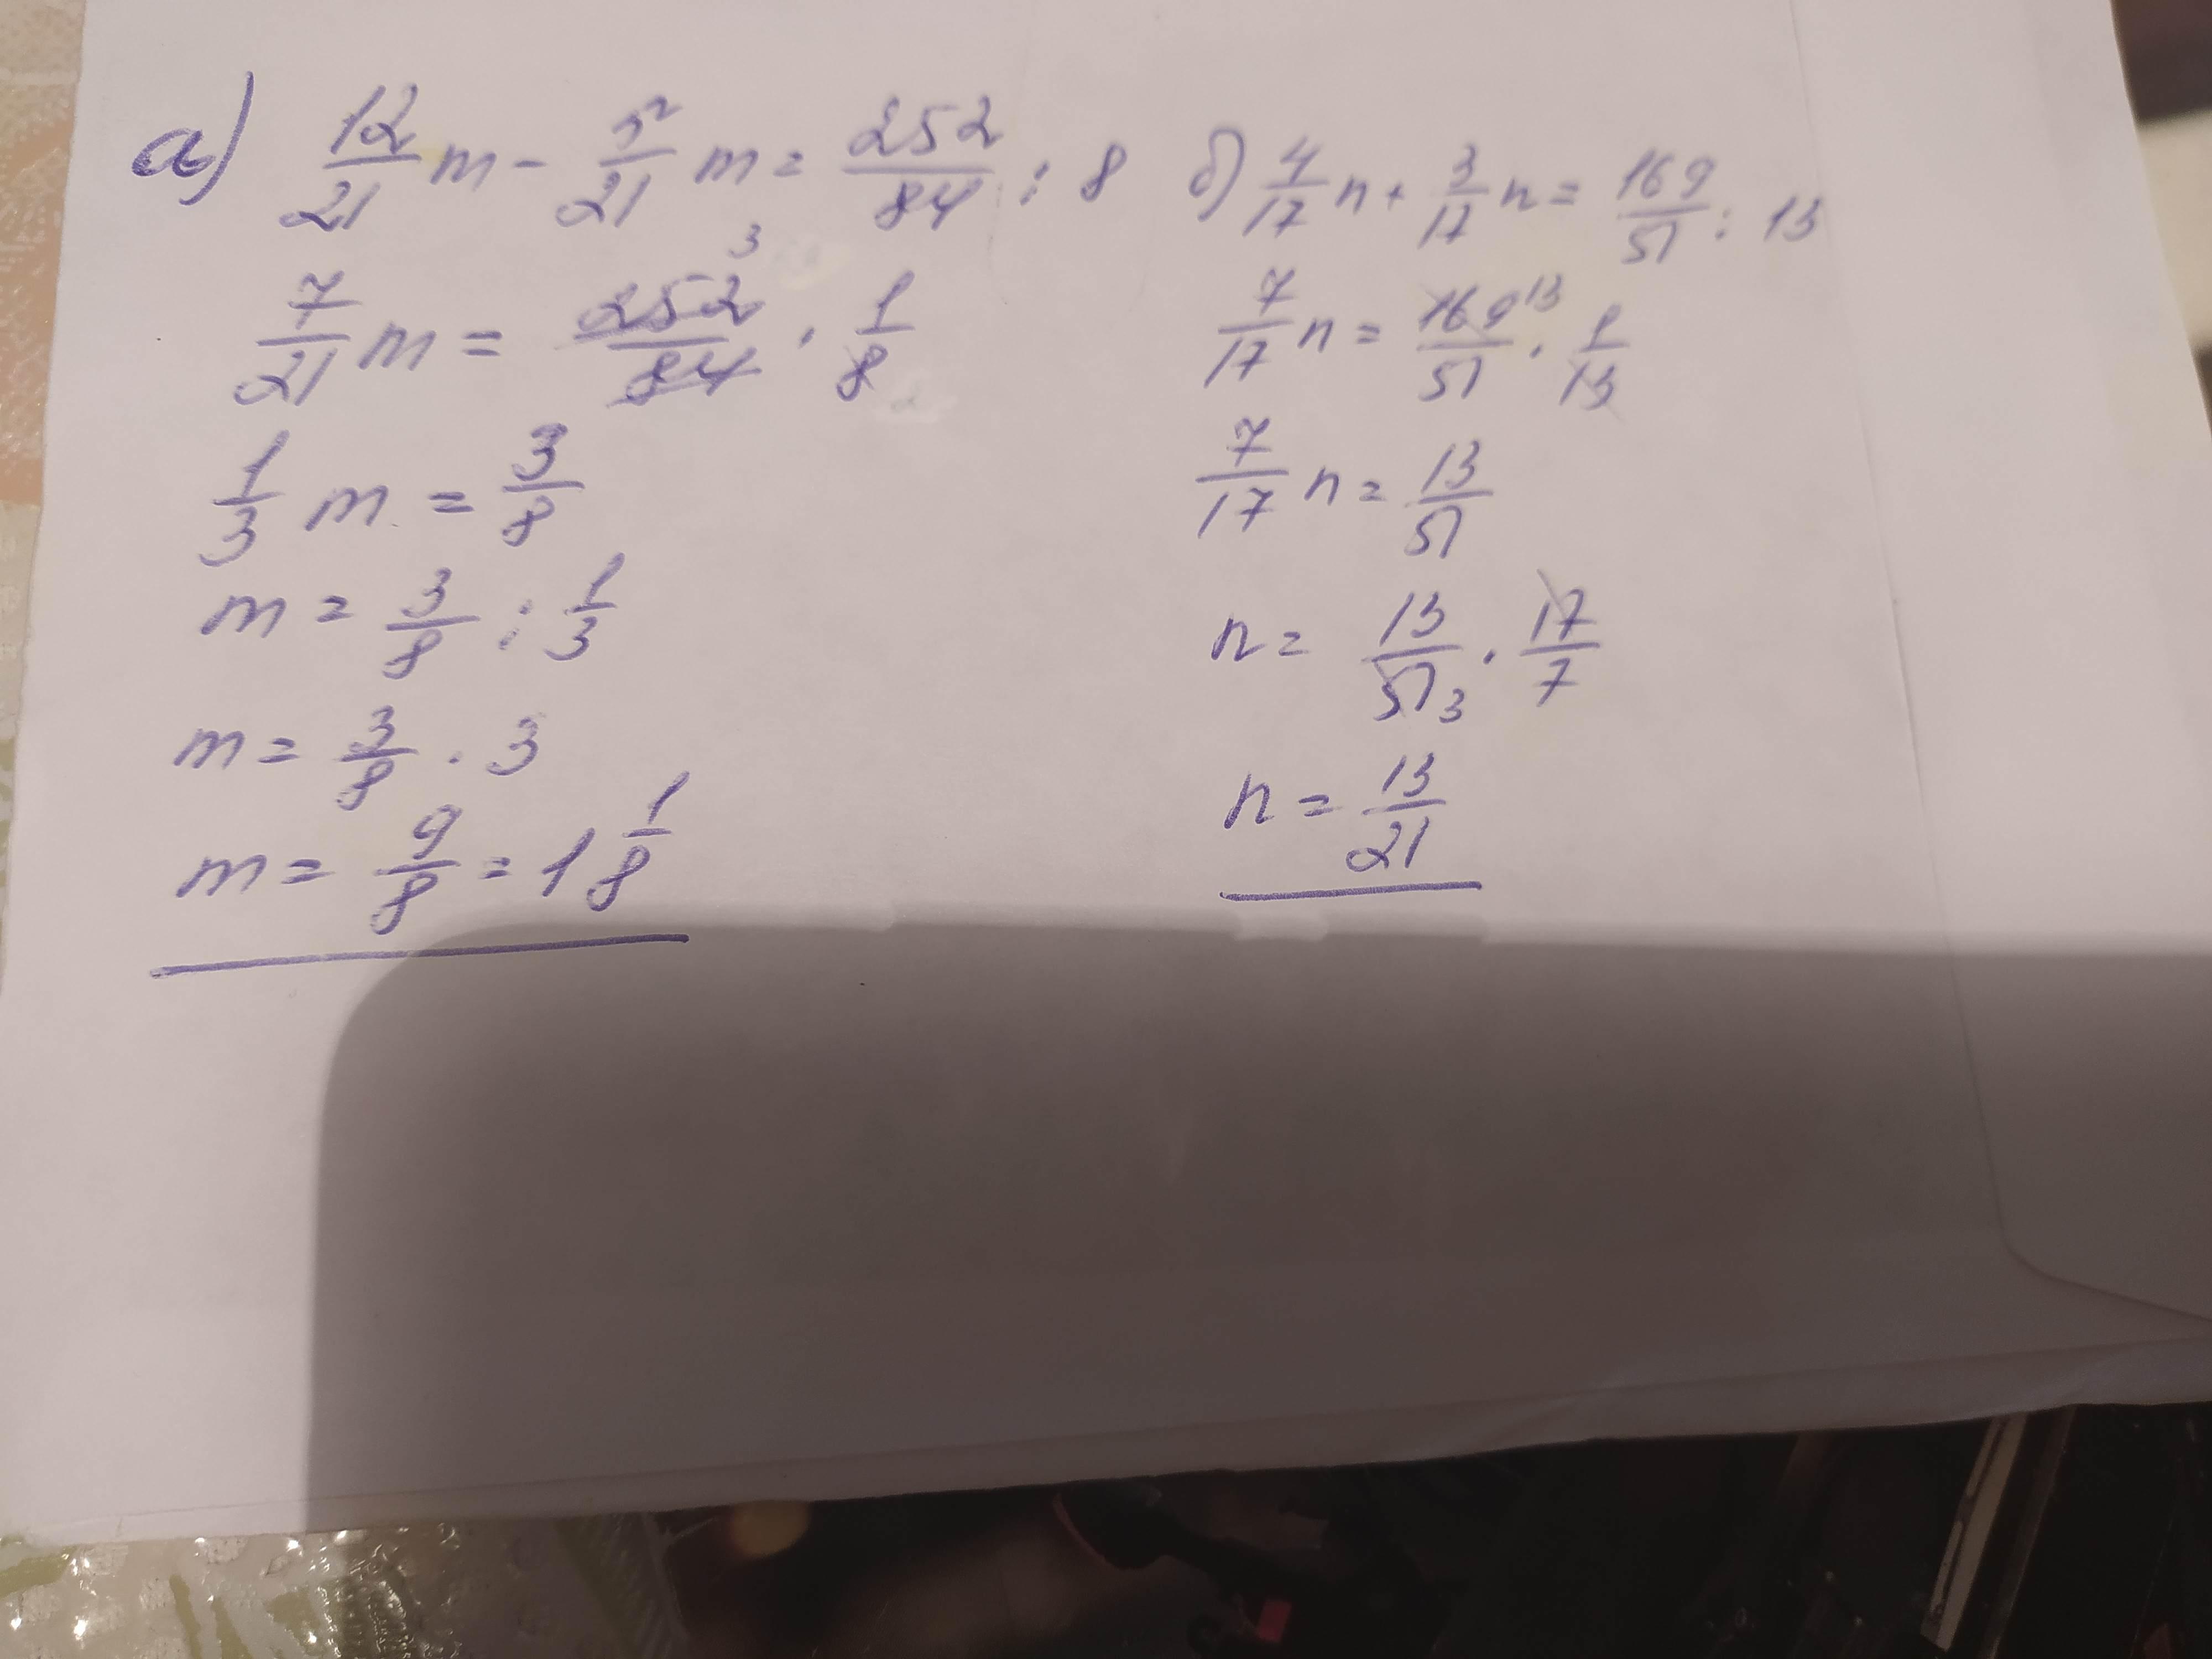 а) 12/21 m - 5/21 m = 252/84 : 8
7/21 m = 252/84 3 · 1/8
1/3 m = 3/8
m = 3/8 : 1/3
m = 3/8 · 3
m = 9/8 = 1 1/8
б) 4/17 n + 3/17 n = 169/51 : 13
7/17 n = 169/51 13 · 1/13
7/17 n = 13/51
n = 13/51 3 · 17/7
n = 13/21